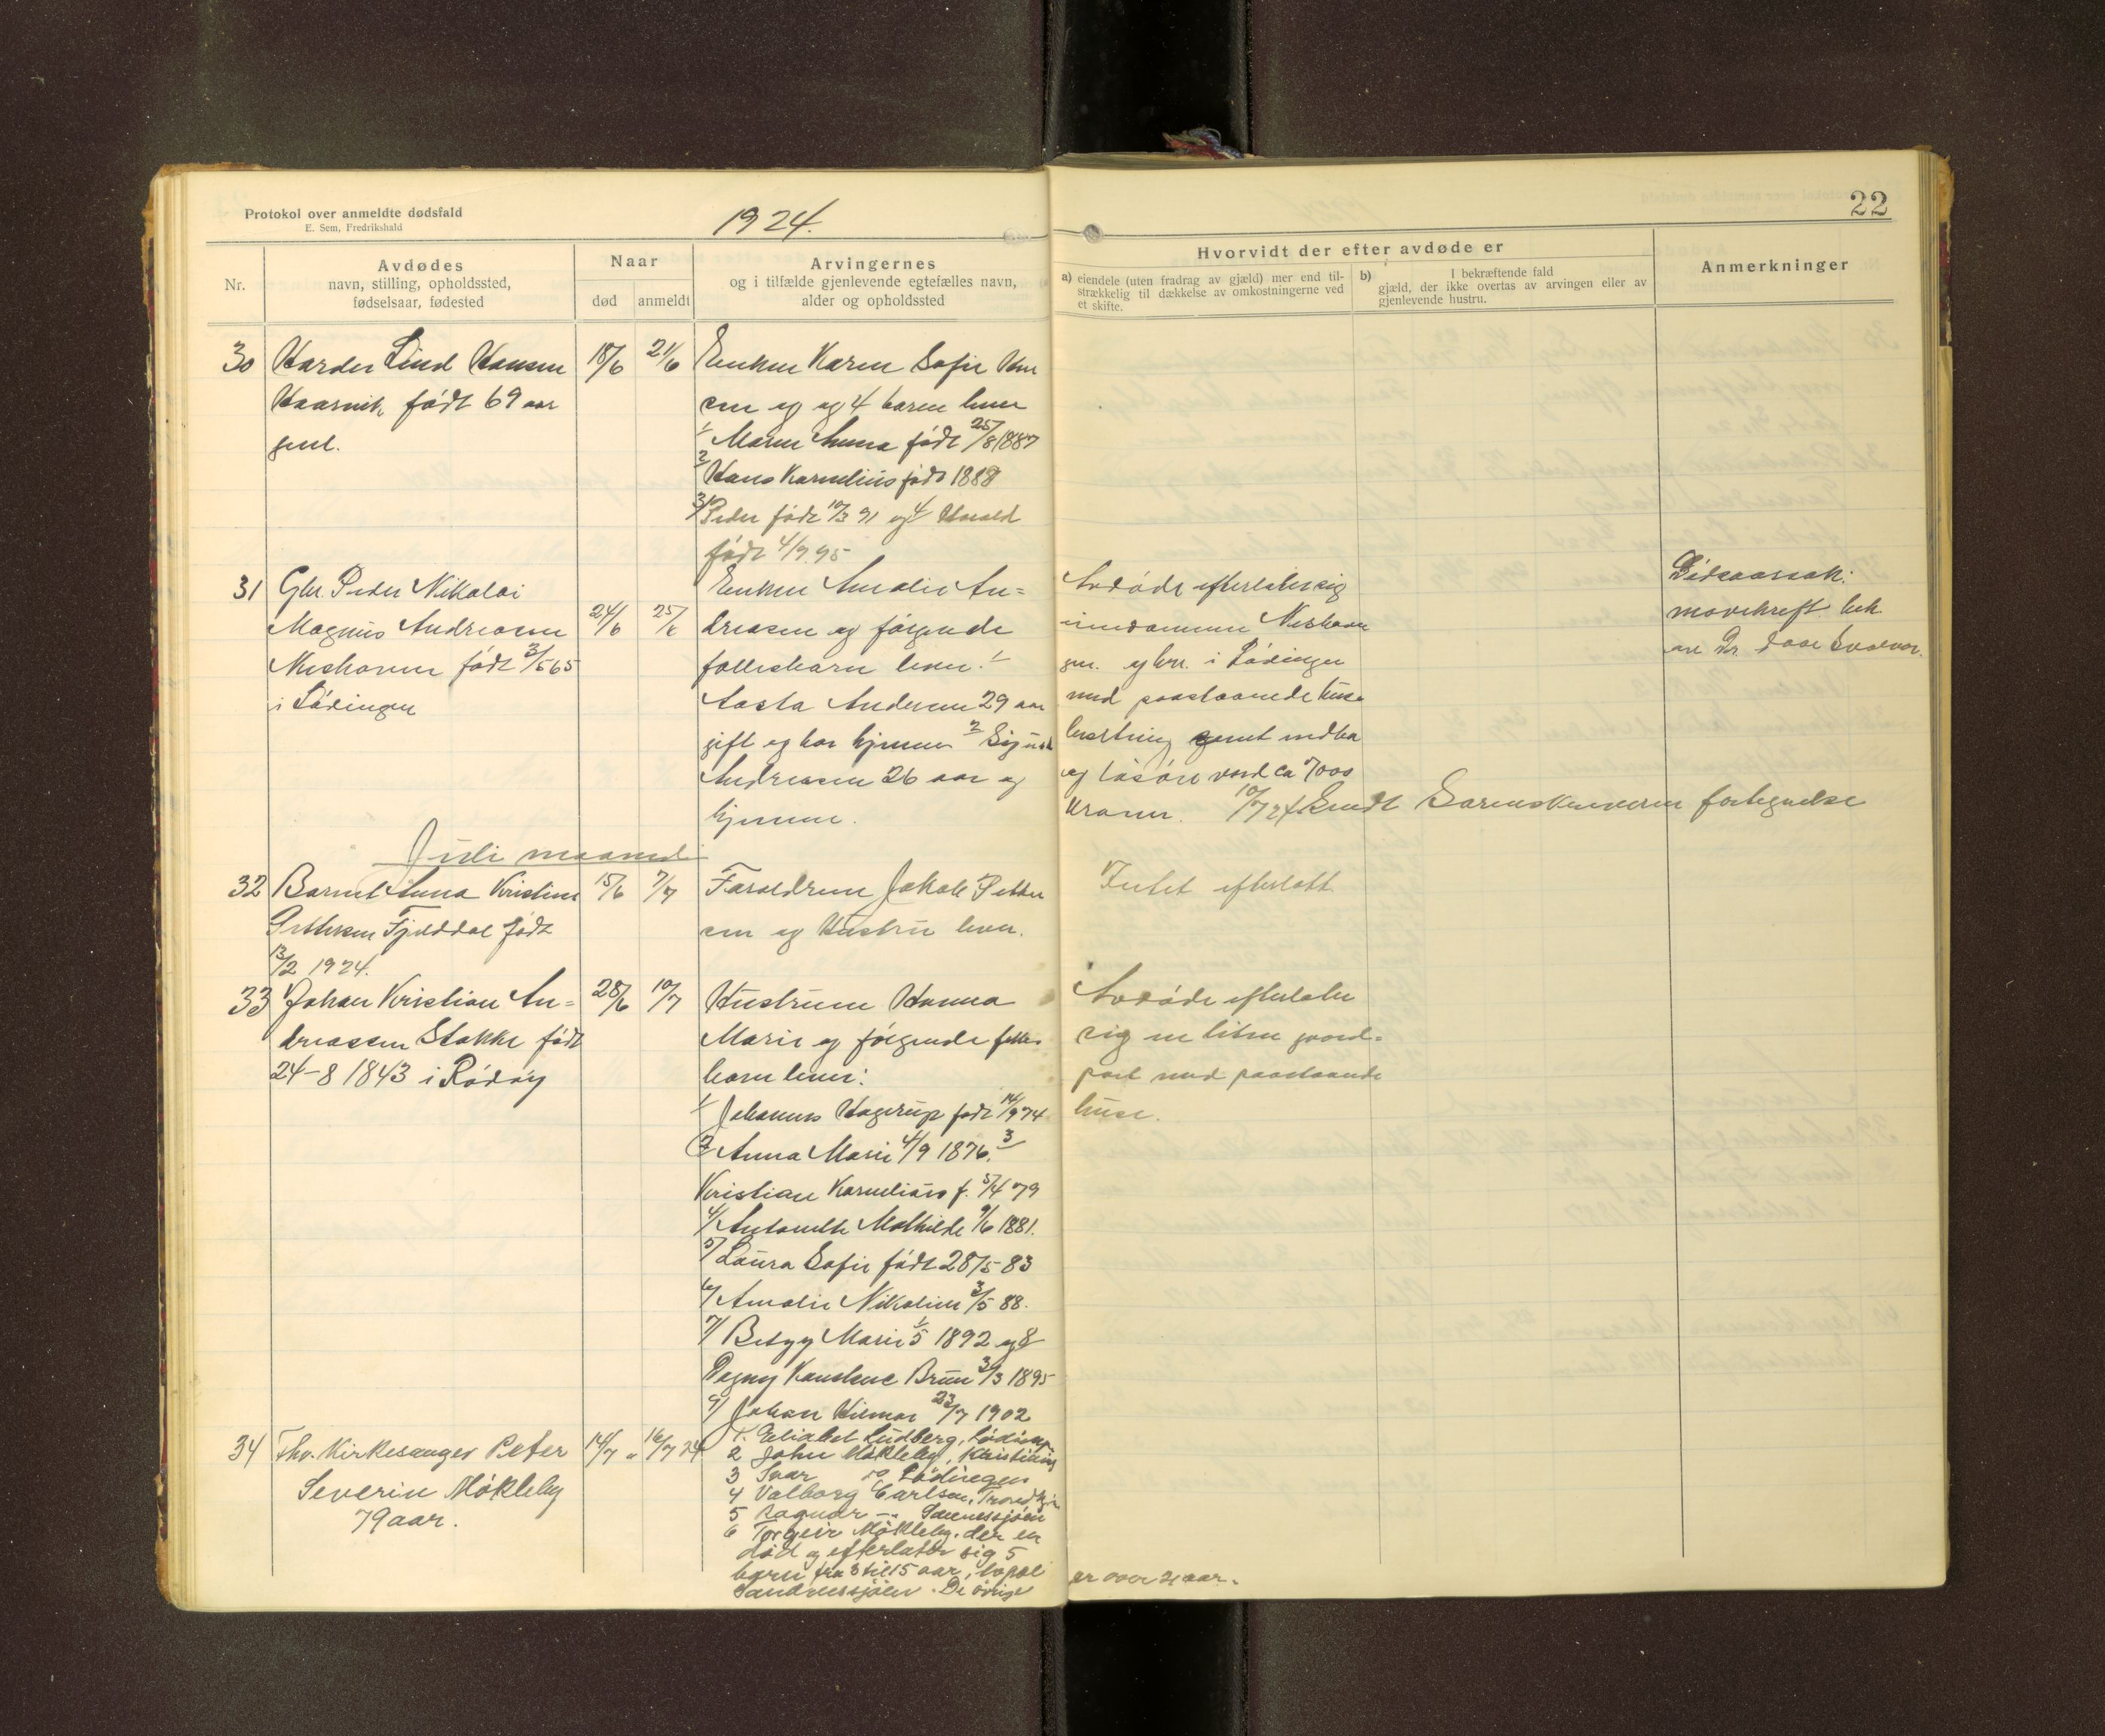 Protokol over anmeldte dødsfald
E. Sem, Fredrikshald
1924.
22
Nr.
Avdødes
navn, stilling, opholdssted,
fødselsaar, fødested
Naar
død
anmeldt
Arvingernes
og i tilfælde gjenlevende egtefælles navn,
alder og opholdssted
Hvorvidt der efter avdøde er
a) eiendele (uten fradrag av gjæld) mer end til-
strækkelig til dækkelse av omkostningerne ved
et skifte.
b) I bekræftende fald
gjæld, der ikke overtas av arvingen eller av
gjenlevende hustru.
Anmerkninger
30 Harder Lind Hansen 18/6 21/6 Enken Karen Sofie Han
født 69 aar
sen og og 4 barn lever
gml.
1/ Maren Anna født 25/8 1887
2/ Hans Kornelius født 1888
3/ Peder født 10/3 91 og 4/ Harald
født 4/9 95
31 Gbr. Peder Nikolai
Magnus Andreasen 24/6 25/6
Neshavn født 3/5 65
i Lødingen
Enken Amalie An=
dreasen og følgende
fellesbarn lever: 1/
Aasta Andersen 29 aar
gift og bor hjemme 2/ Sigurd
Andreasen 26 aar og
hjemme.
Avdøde efterlater sig
eiendommen Neshavn
i Lødingen
med paastaaende huse
samt indbo
og løsøre verd ca 7000
kroner. 10/7 24 Sendt Sorenskriveren fortegnelse
Dødsaarsak:
Dr. Daae Svolvær.
Juli maaned
32 Barnet Anna Kristine 15/6 7/7 Foreldrene Jakob Petter
Pettersen Fjelddal født
sen og Hustru lever.
13/2 1924.
Intet efterlatt.
33 Johan Kristian An= 28/6 10/7 Hustruen Hanna
dreassen Stokke født
Marie og følgende felles
24-8 1843 i Rødøy
barn lever:
1/ Johannes Hagerup født 14/9 74
2/ Anna Marie 4/9 1876. 3/
Kristian Kornelius f. 5/4 79
4/ Antonette Mathilde 9/6 1881.
5/ Laura Sofie født 28/5 83
6/ Amalie Nikoline 3/5 88.
7/ Betzy Marie 1/5 1892 og 8/
Dagny Konstanse Bruun 30/3 1895
9/ Johan Hilmar 23/7 1902
Avdøde efterlater
sig en liten gaard=
part med paastaaende
huse.
34 Fhv. Kirkesanger Peter 14/7 16/7 24
Severin Møkleby
79 aar.
1. Elisabet Lundberg, Lødingen
2 John Møkleby, Kristiania
3 Ivar do Lødingen
4 Valborg Carlsen, Trondhj.
5 Ragnar -"- Sannessjøen
6 Torgeir Møkleby, der er
død og efterlater sig 5
barn fra 3 til 15 aar, bopæl
Sandnessjøen. De øvrige er over 21 aar.